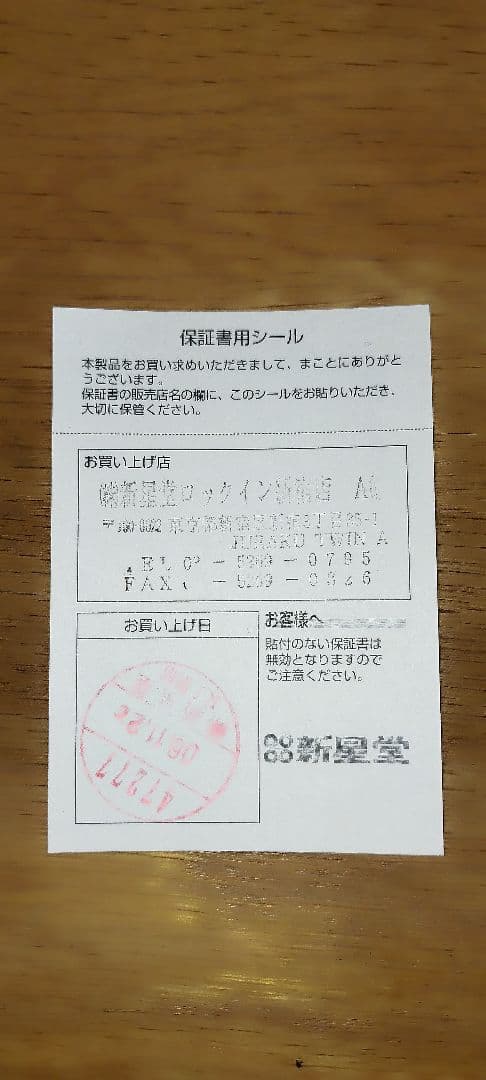 保証書用シール
本製品をお買い求めいただきまして、まことにありがと
うございます。
保証書の販売店名の欄に、このシールをお貼りいただき、
大切に保管ください。
お買い上げ店
㈱新星堂ロックイン新宿店
HIRAKU TWIN A
- 0795
FAX
お買い上げ日
47277
お客様へ
貼付のない保証書は
無効となりますので
ご注意ください。
新星堂